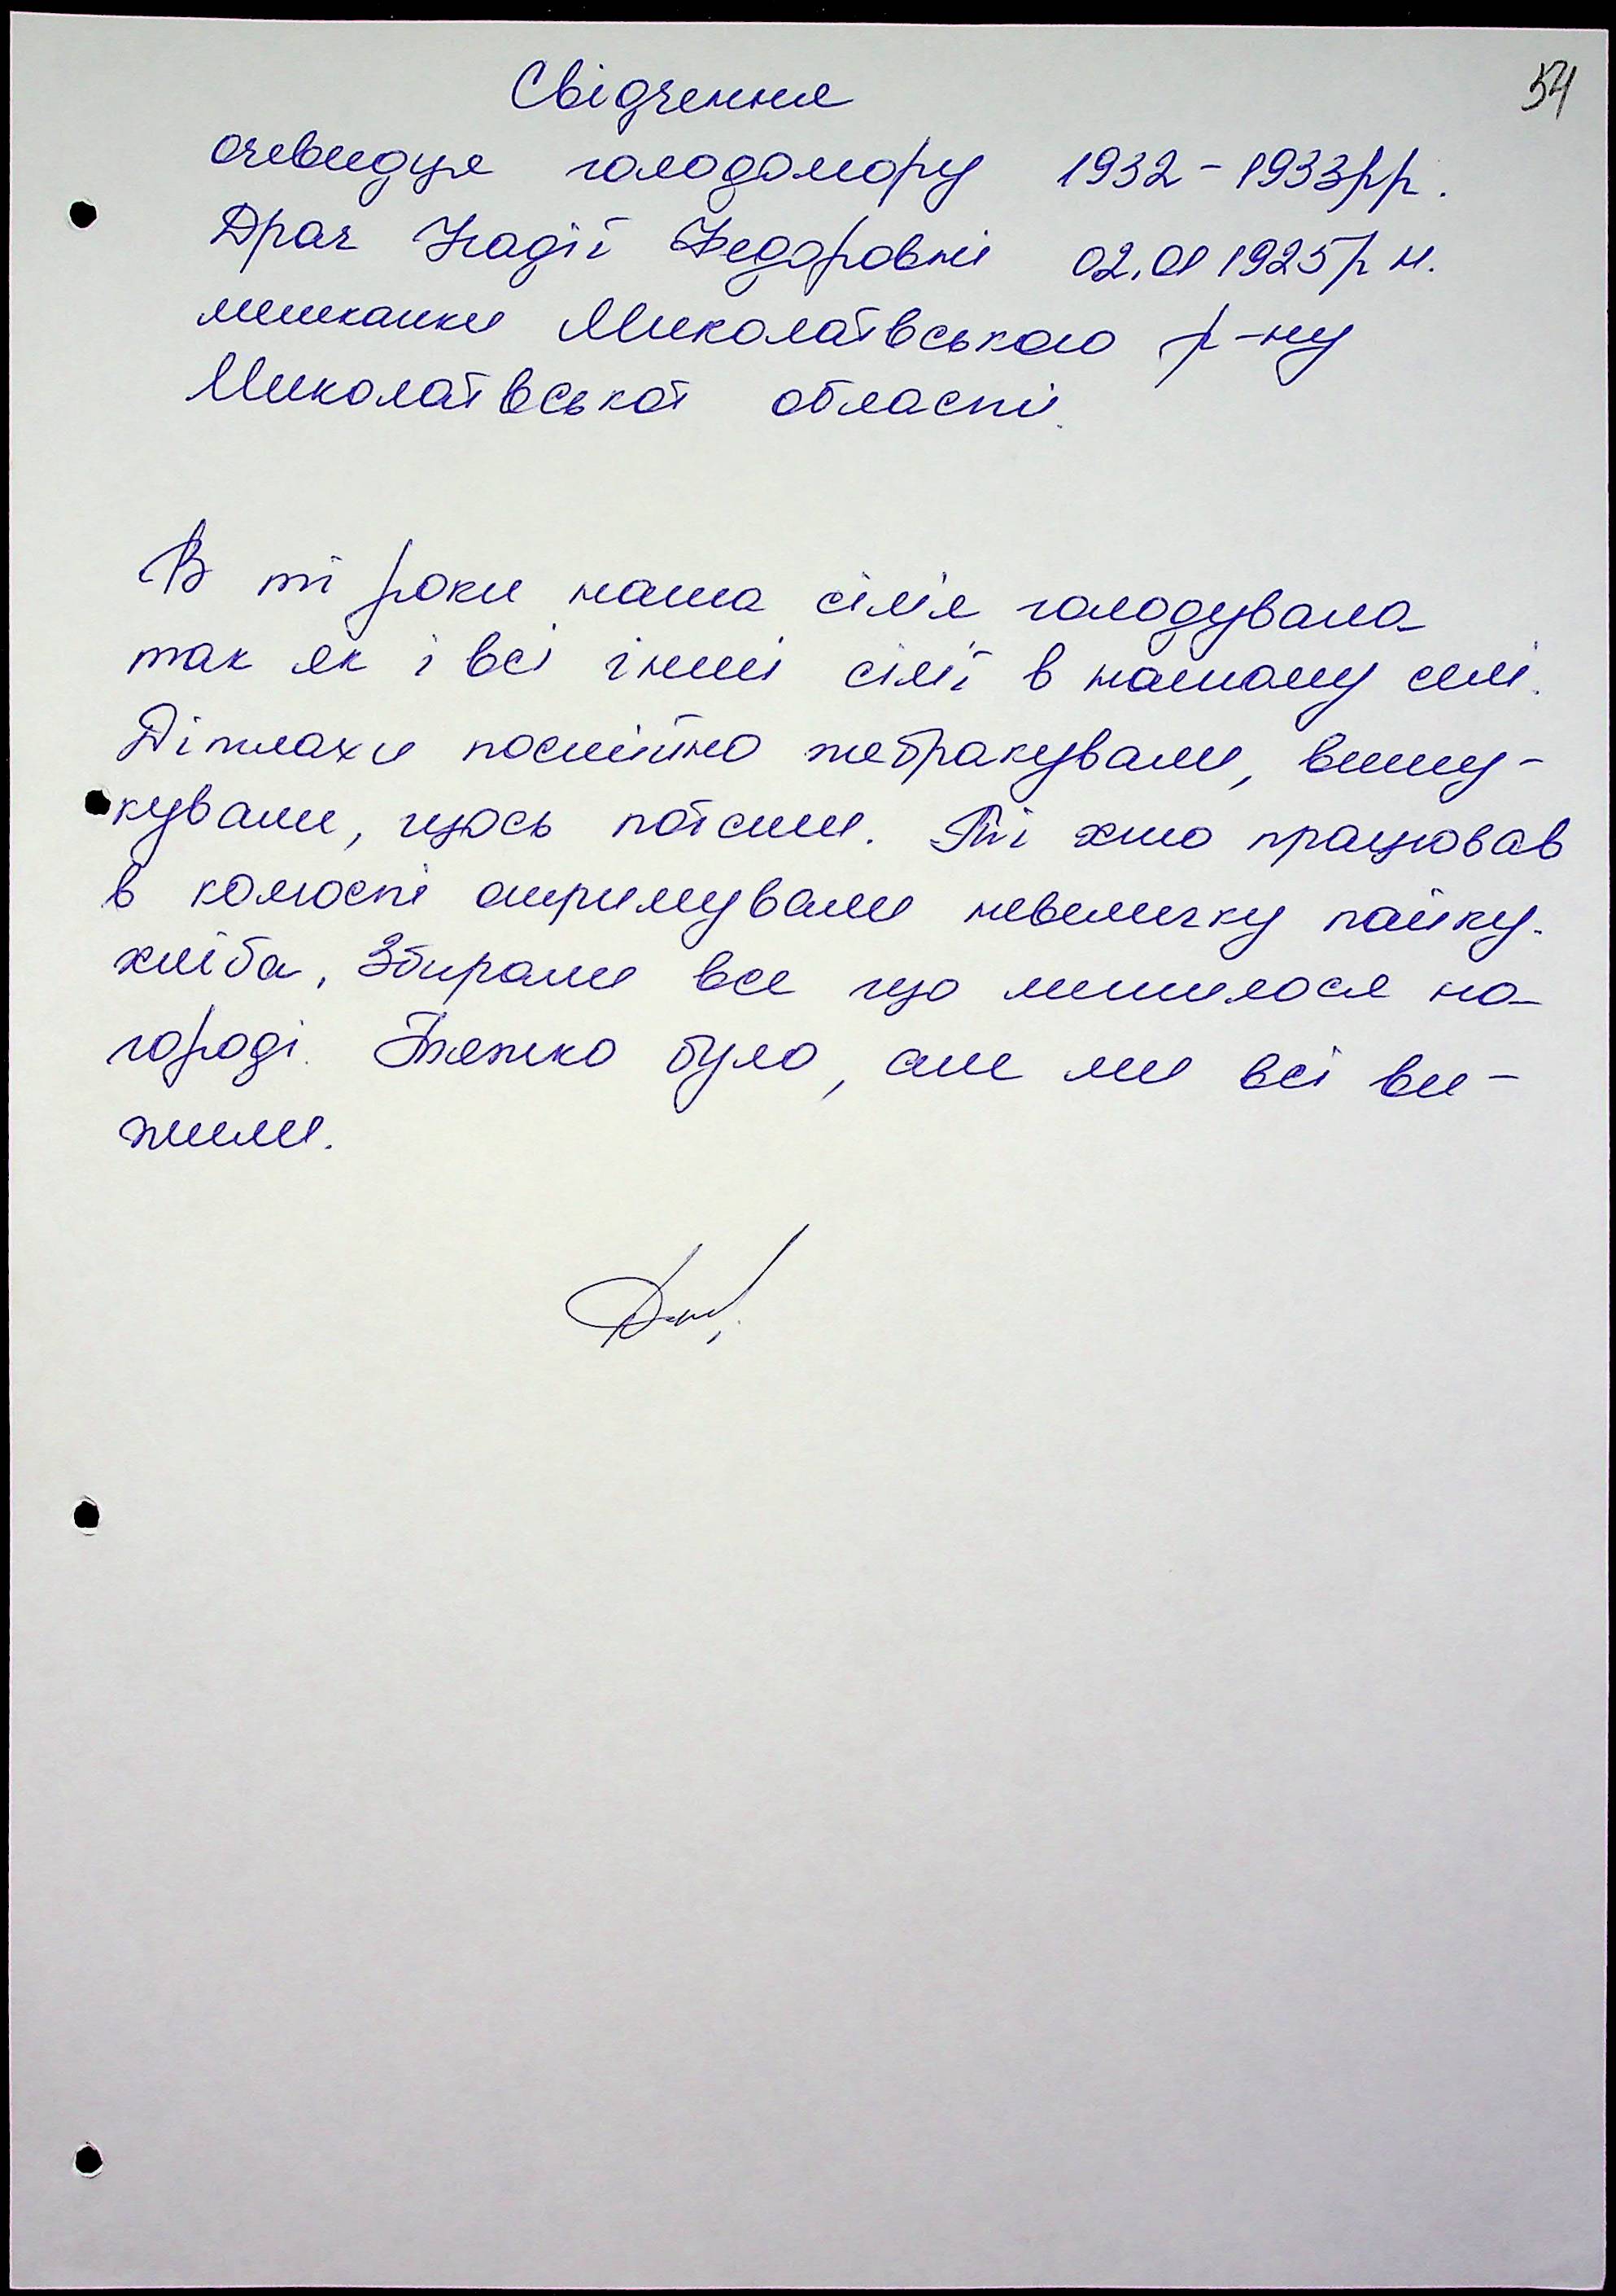 54
Свідчення
очевидця голодомору 1932-1933рр.
Драч Надії Федоровні 02.01 1925р н.
мешканки Миколаївського р-ну
Миколаївської області.
В ті роки наша сім'я голодувала
так як і всі інші сім'ї в нашому селі.
Дітлахи постійно жебракували, вишу-
кували, щось поїсти. Ті хто працював
в колгоспі отримували невеличку пайку
хліба. Збирали все що лишилося на
городі. Тяжко було, але ми всі ви-
жили.